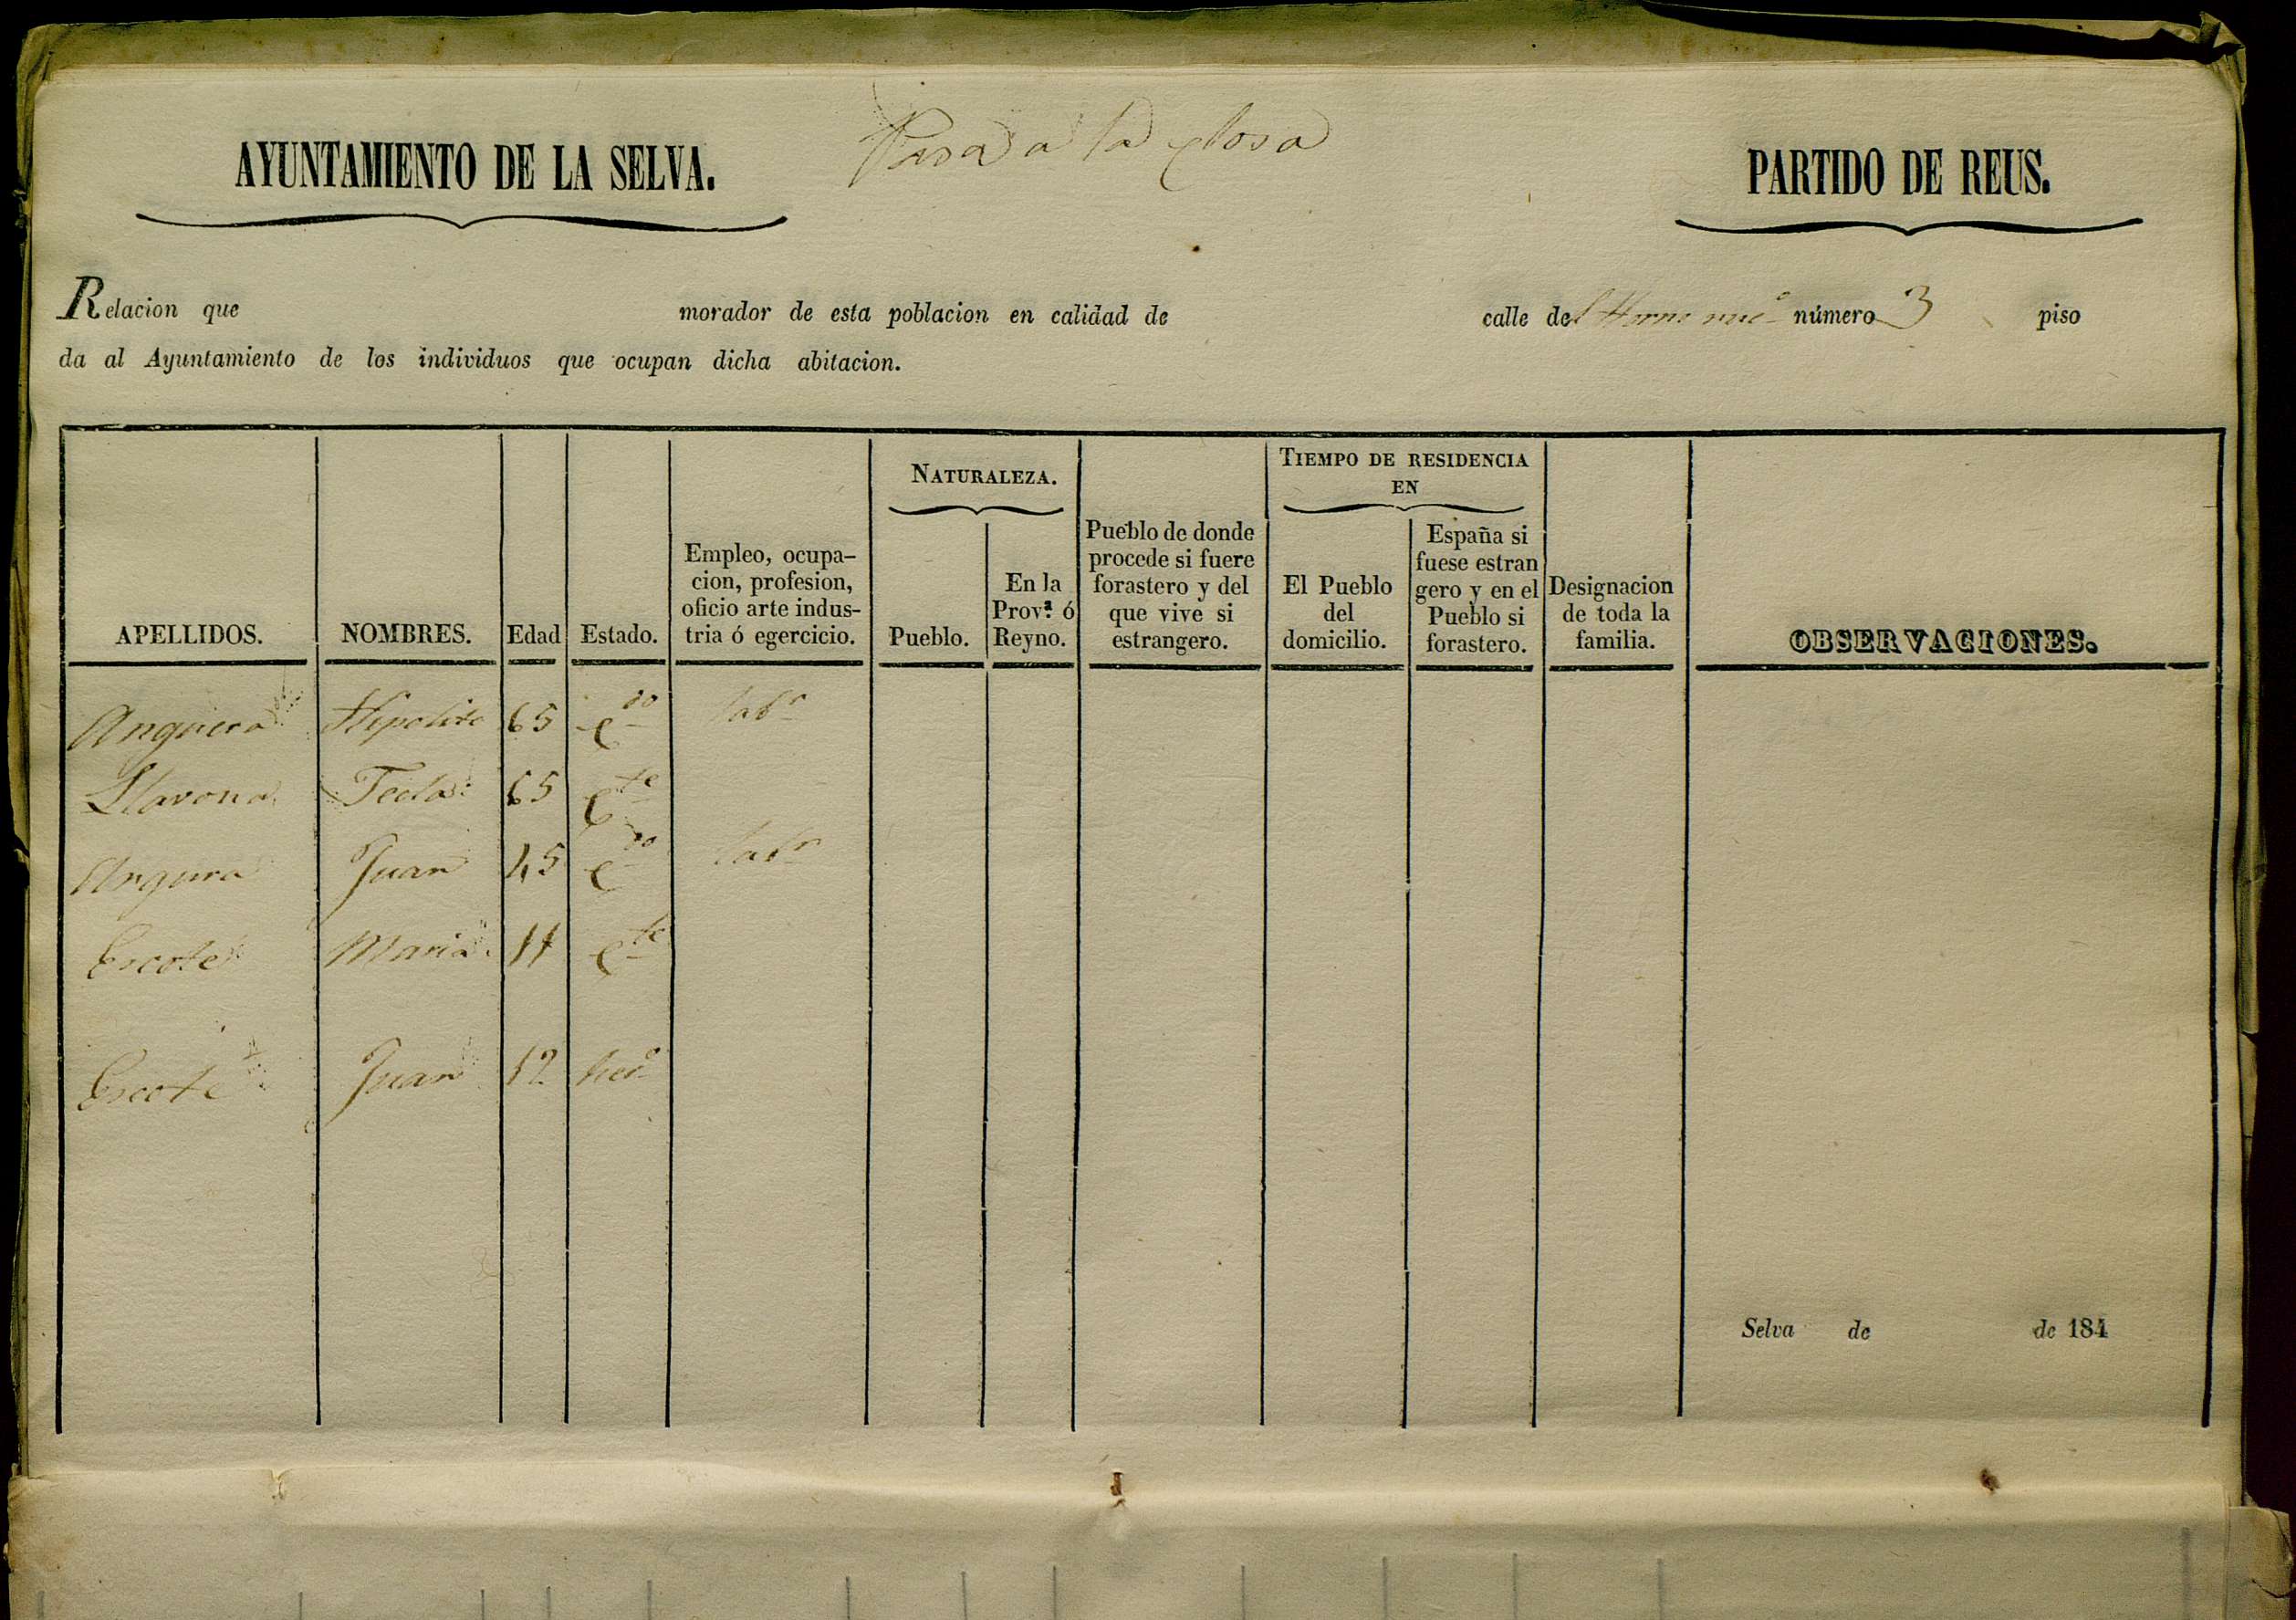 Pasa a la closa
AYUNTAMIENTO DE LA SELVA.
PARTIDO DE REUS.
Relacion que morador de esta poblacion en calidad de calle del Horno nuº número 3 piso
da al Ayuntamiento de los individuos que ocupan dicha abitacion.
APELLIDOS.
NOMBRES.
Edad
Estado.
Empleo, ocupa-
cion, profesion,
oficio arte indus-
tria ó egercicio.
NATURALEZA.
Pueblo.
En la
Prov.ª ó
Reyno.
Pueblo de donde
procede si fuere
forastero y del
que vive si
estrangero.
TIEMPO DE RESIDENCIA
EN
El Pueblo
del
domicilio.
España si
fuese estran
gero y en el
Pueblo si
forastero.
Designacion
de toda la
familia.
OBSERVACIONES.
Anguera Hipolito 65 Cdo labr
Llavona Tecla 65 Cte
Angura Juan 45 Cdo labr
Escote Maria Cte
Escote Juan 12
Selva de de 184